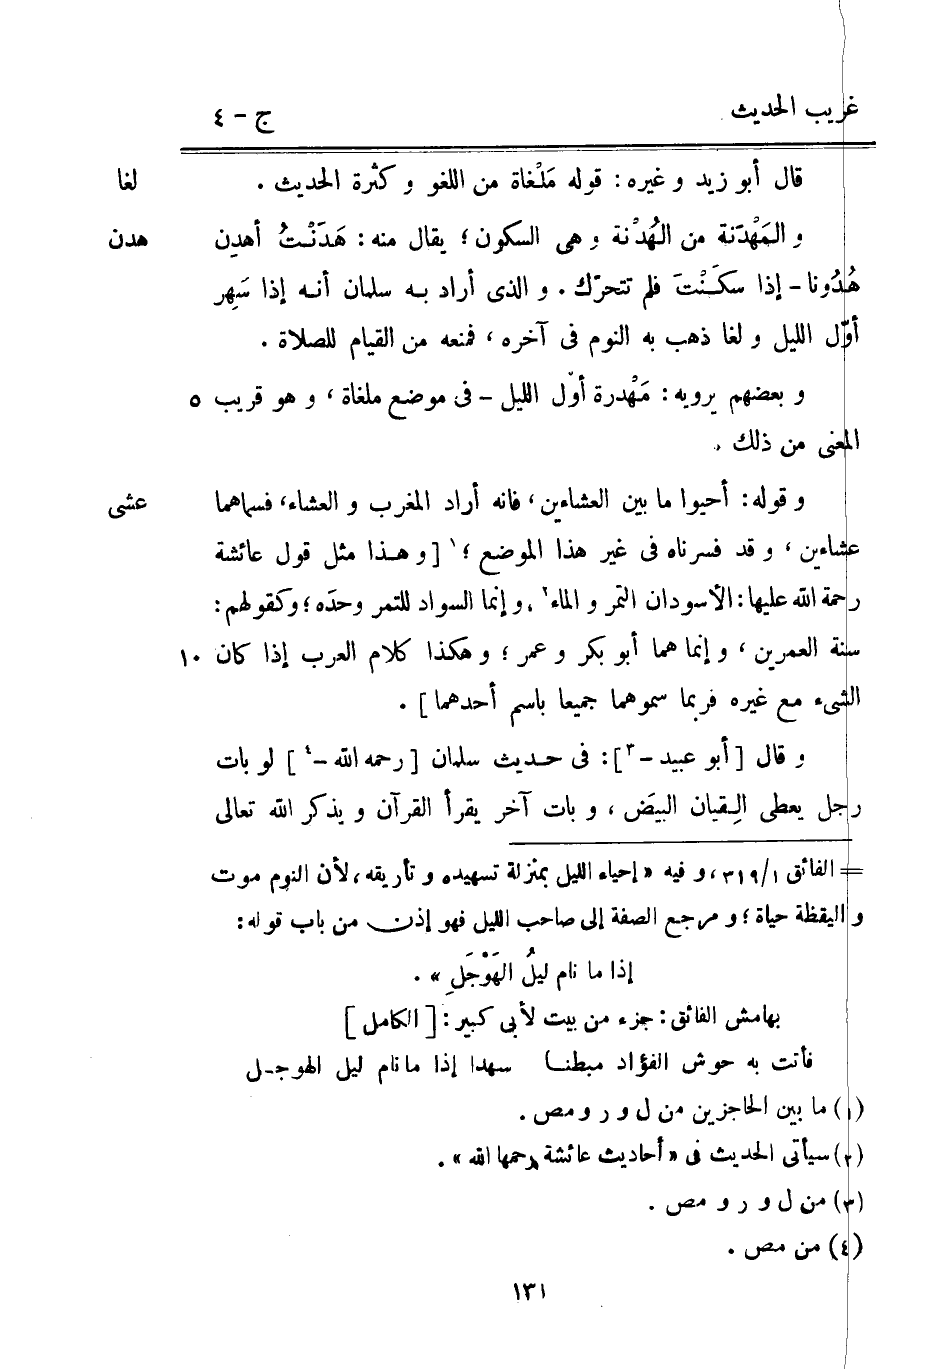 غريب الحديث ج - ٤
قال أبو زيد و غيره : قوله مَلْغاة من اللغو و كثرة الحديث . لغا
و المَهْدَنة من الهُدْنة و هى السكون ؛ يقال منه : هَدَنْتُ أهدِن هدن
هُدُونا - إذا سكَنْتَ فلم تتحرّك . و الذى أراد به سلمان أنه إذا سَهِر
أوّل الليل و لغا ذهب به النوم فى آخره ، فمنعه من القيام للصلاة .
و بعضهم يرويه : مَهْدرة أوّل الليل - فى موضع ملغاة ، و هو قريب ٥
المعنى من ذلك .
و قوله : أحيوا ما بين العشاءين ، فانه أراد المغرب و العشاء ، فسماهما عشى
عشاءين ، و قد فسرناه فى غير هذا الموضع ؛ ١ [ و هذا مثل قول عائشة
رحمة الله عليها : الأسودان التمر و الماء ٢ ، و إنما السواد للتمر وحدَه ؛ وكقولهم :
سنة العمرين ، و إنما هما أبو بكر و عمر ؛ و هكذا كلام العرب إذا كان ١٠
الشىء مع غيره فربما سموهما جميعا باسم أحدهما ] .
و قال [ أبو عبيد - ٣ ] : فى حديث سلمان [ رحمه الله - ٤ ] لو بات
رجل يعطى القِيان البيَض ، و بات آخر يقرأ القرآن و يذكر الله تعالى
= الفائق ١/ ٣١٩ ، و فيه « إحياء الليل بمنزلة تسهيده و تأريقه ، لأن النوم موت
و اليقظة حياة ؛ و مرجع الصفة إلى صاحب الليل فهو إذن من باب قوله :
إذا ما نام ليلُ الهَوْجَلِ » .
بهامش الفائق : جزء من بيت لأبى كبير : [ الكامل ]
فأتت به حوش الفؤاد مبطنا سهدا إذا ما نام ليل الهوجل
(١) ما بين الحاجزين من ل و ر و مص .
(٢) سيأتى الحديث فى « أحاديث عائشة رحمها الله » .
(٣) من ل و ر و مص .
(٤) من مص .
١٣١